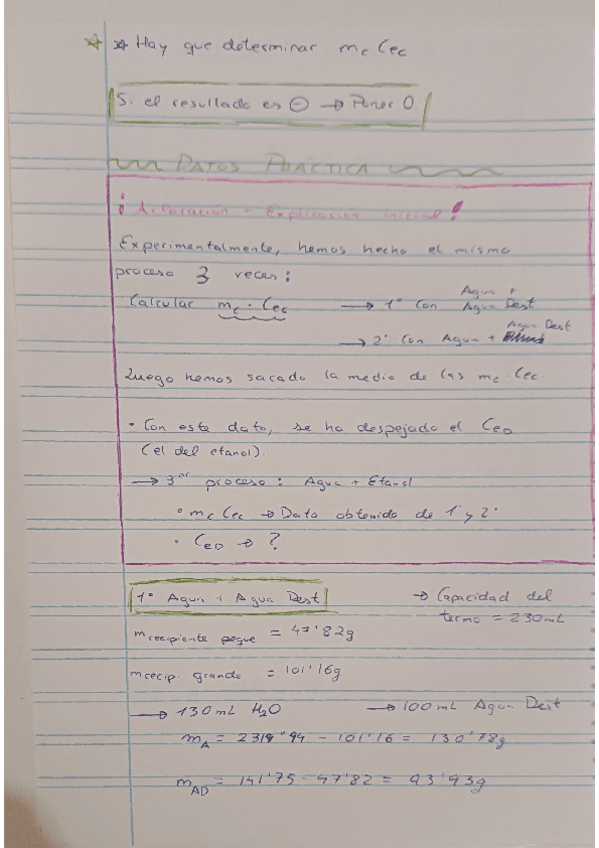 ☆ ☆ Hay que determinar mc Cec
Si el resultado es ⊖ → Poner 0.
DATOS PRÁCTICA
¡ Aclaración - Explicación inicial !
Experimentalmente, hemos hecho el mismo
proceso 3 veces:
Calcular mc · Cec → 1º Con Agua + Agua Dest
→ 2º Con Agua + Agua Dest
Luego hemos sacado la media de las mc · Cec.
• Con este dato, se ha despejado el CeD
(el del etanol).
→ 3er proceso: Agua + Etanol
• mc Cec → Dato obtenido de 1º y 2º
• CeD → ?
1º Agua + Agua Dest → Capacidad del
termo = 230mL
mrecipiente peque = 47'82g
mrecip. grande = 101'16g
→ 130mL H2O → 100mL Agua Dest
mA = 2319'94 - 101'16 = 130'78g
mAD = 141'75 - 47'82 = 93'93g